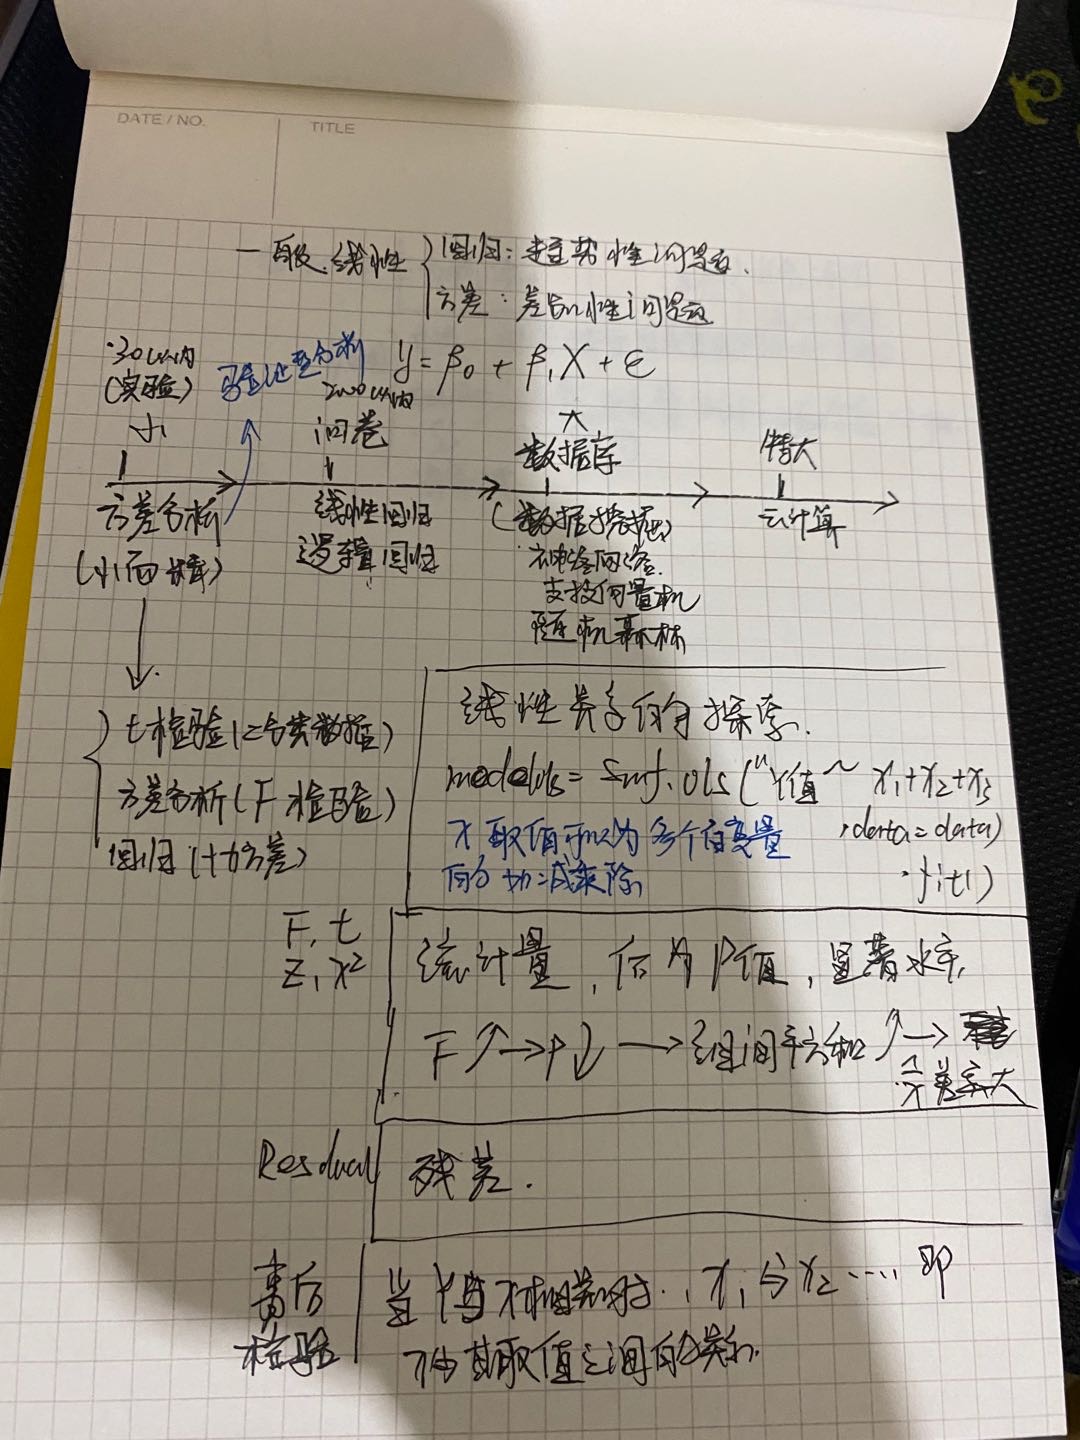 DATE / NO.
TITLE
一般线性
回归：趋势性问题.
方差：差异性问题
y = β₀ + β₁X + ε
30以内
(实验)
小
验证型分析
2000以内
问卷
大
数据库
特大
方差分析
(小而精)
线性回归
逻辑回归
(数据挖掘)
神经网络.
支持向量机
随机森林
云计算
t检验(二分类数据)
方差分析(F检验)
回归(协方差)
线性关系的探索.
modelols = smf.ols("Y值 ~ x₁+x₂+x₃
,data=data)
.fit()
x取值可以为多个自变量
的加减乘除
F, t
Z, x²
统计量, 后为P值, 显著水平,
F↑→P↓→组间平方和↑→
差异大
Residual
残差.
事后
检验
当Y与X相关时, x₁与x₂ .... 即
不同取值之间的关系.